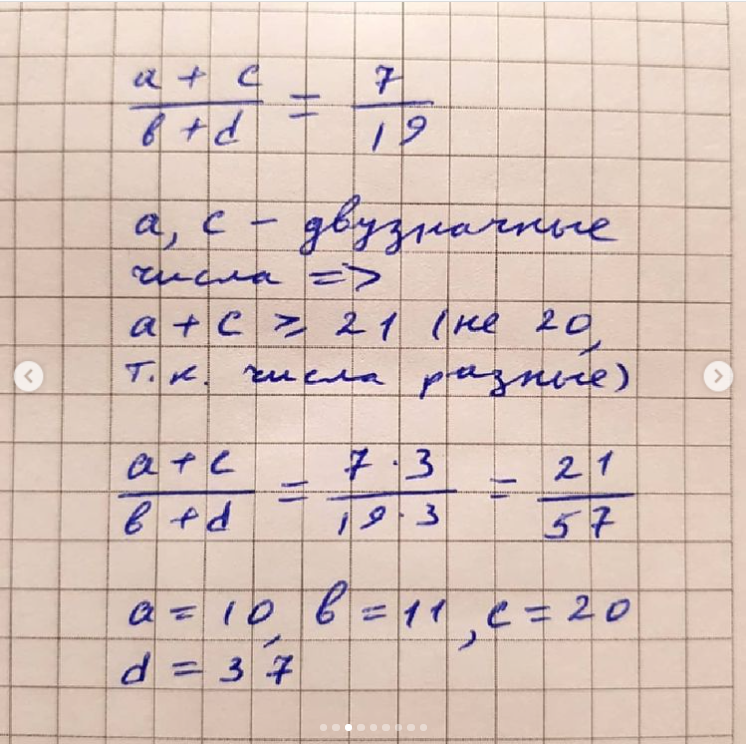 a + c / b + d = 7 / 19
a, c – двузначные
числа =>
a + c ≥ 21 (не 20,
т.к. числа разные)
a + c / b + d = 7 · 3 / 19 · 3 = 21 / 57
a = 10, b = 11, c = 20
d = 37